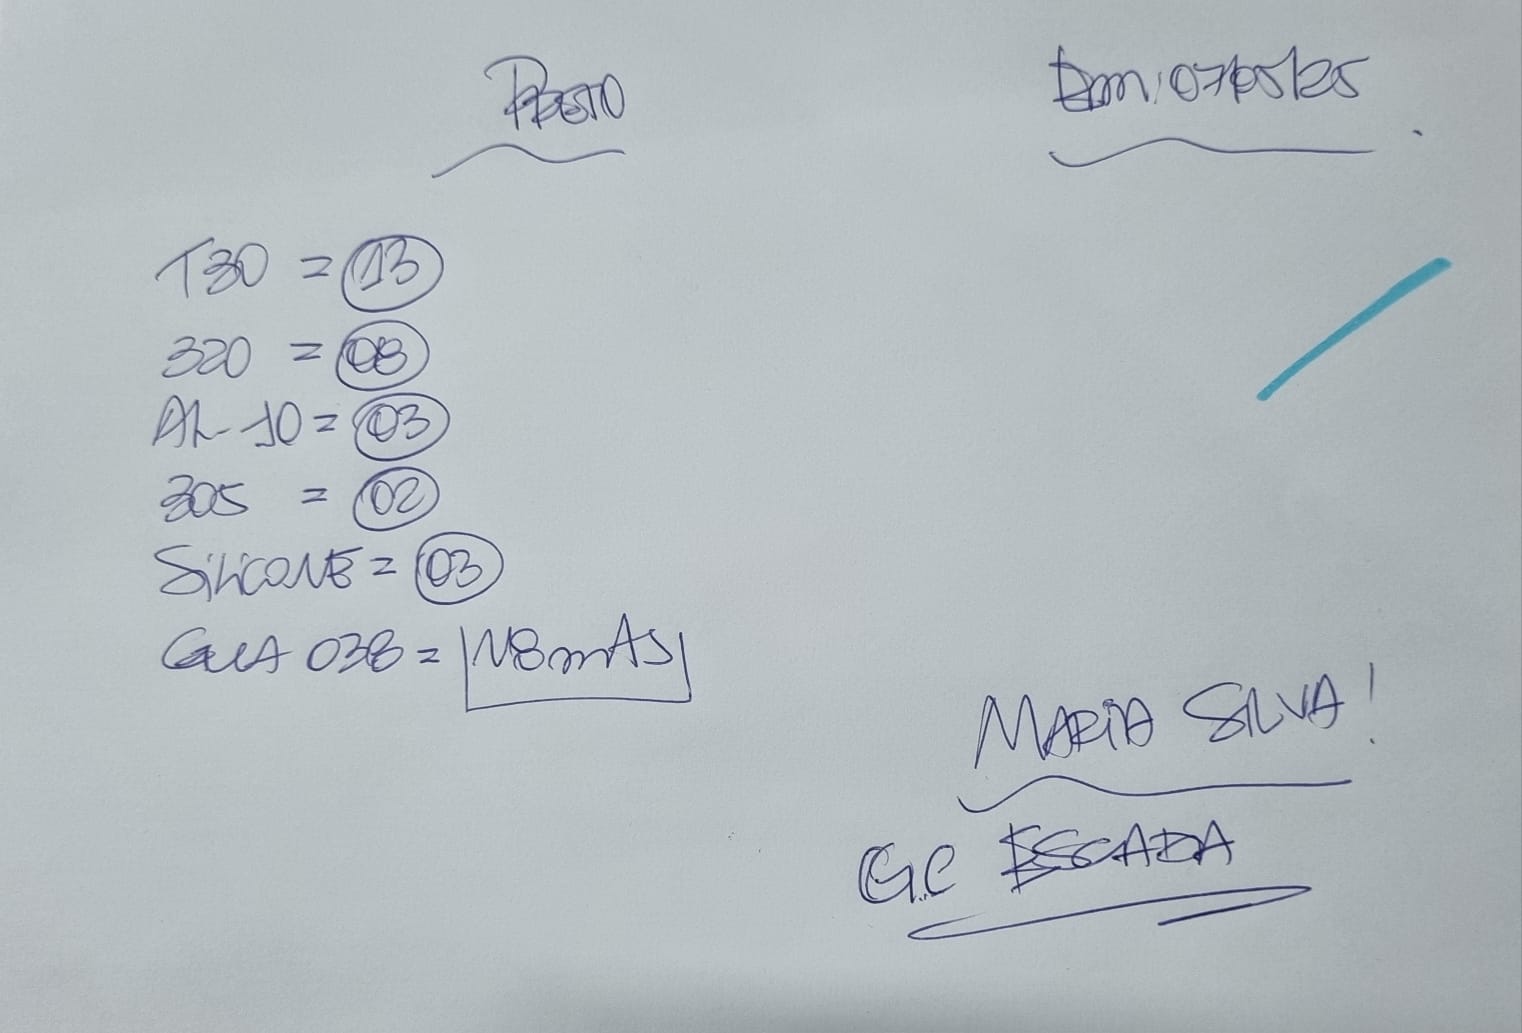 PRETO
Dom: 07/05/25
T30 = 13
320 = 08
AL-10 = 03
305 = 02
SILICONE = 03
038 =
MARIA SILVA!
GC ESCADA